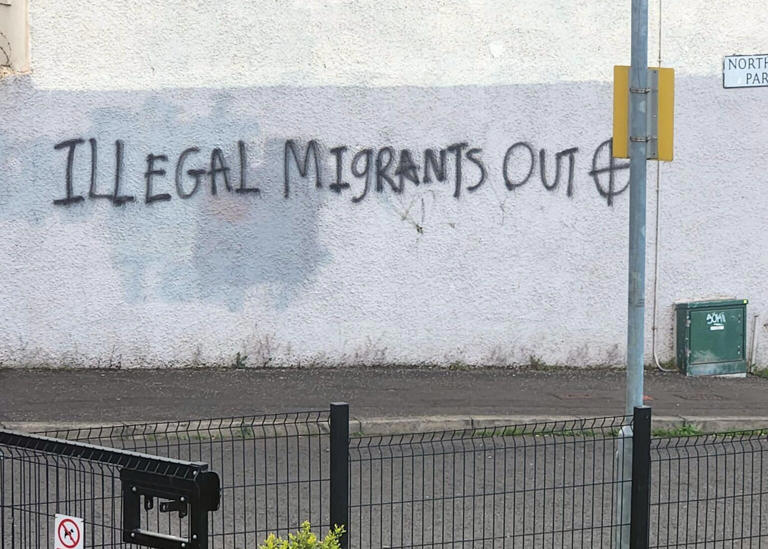 ILLEGAL MIGRANTS OUT
NORTH
PAR